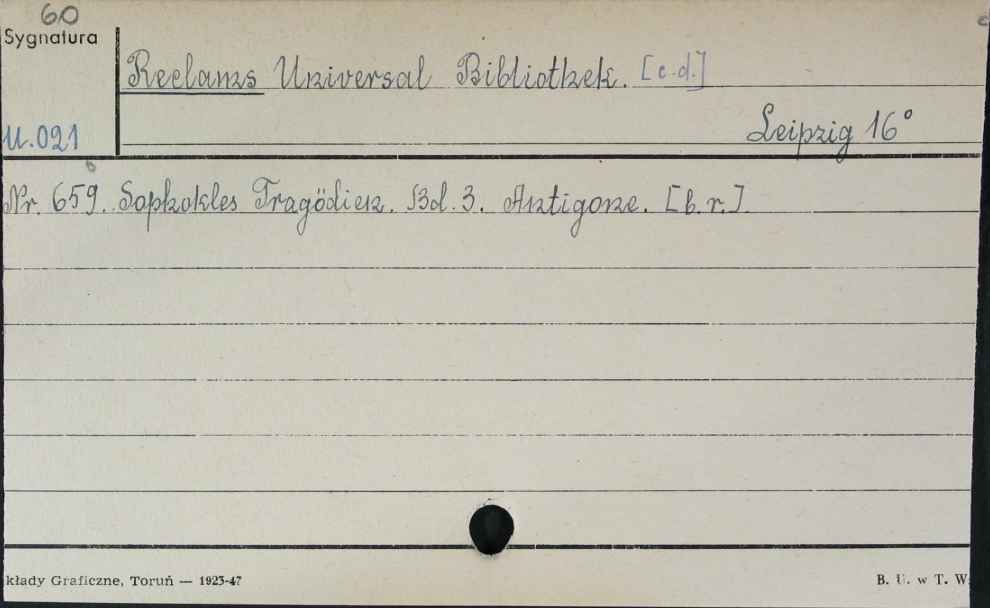 60
Sygnatura
Reclams Universal Bibliothek. [c.d.]
U.021
Leipzig 16°
Nr. 659. Sophokles Tragödien. Bd. 3. Antigone. [b.r.].
kłady Graficzne, Toruń — 1923-47
B. U. w T. W.